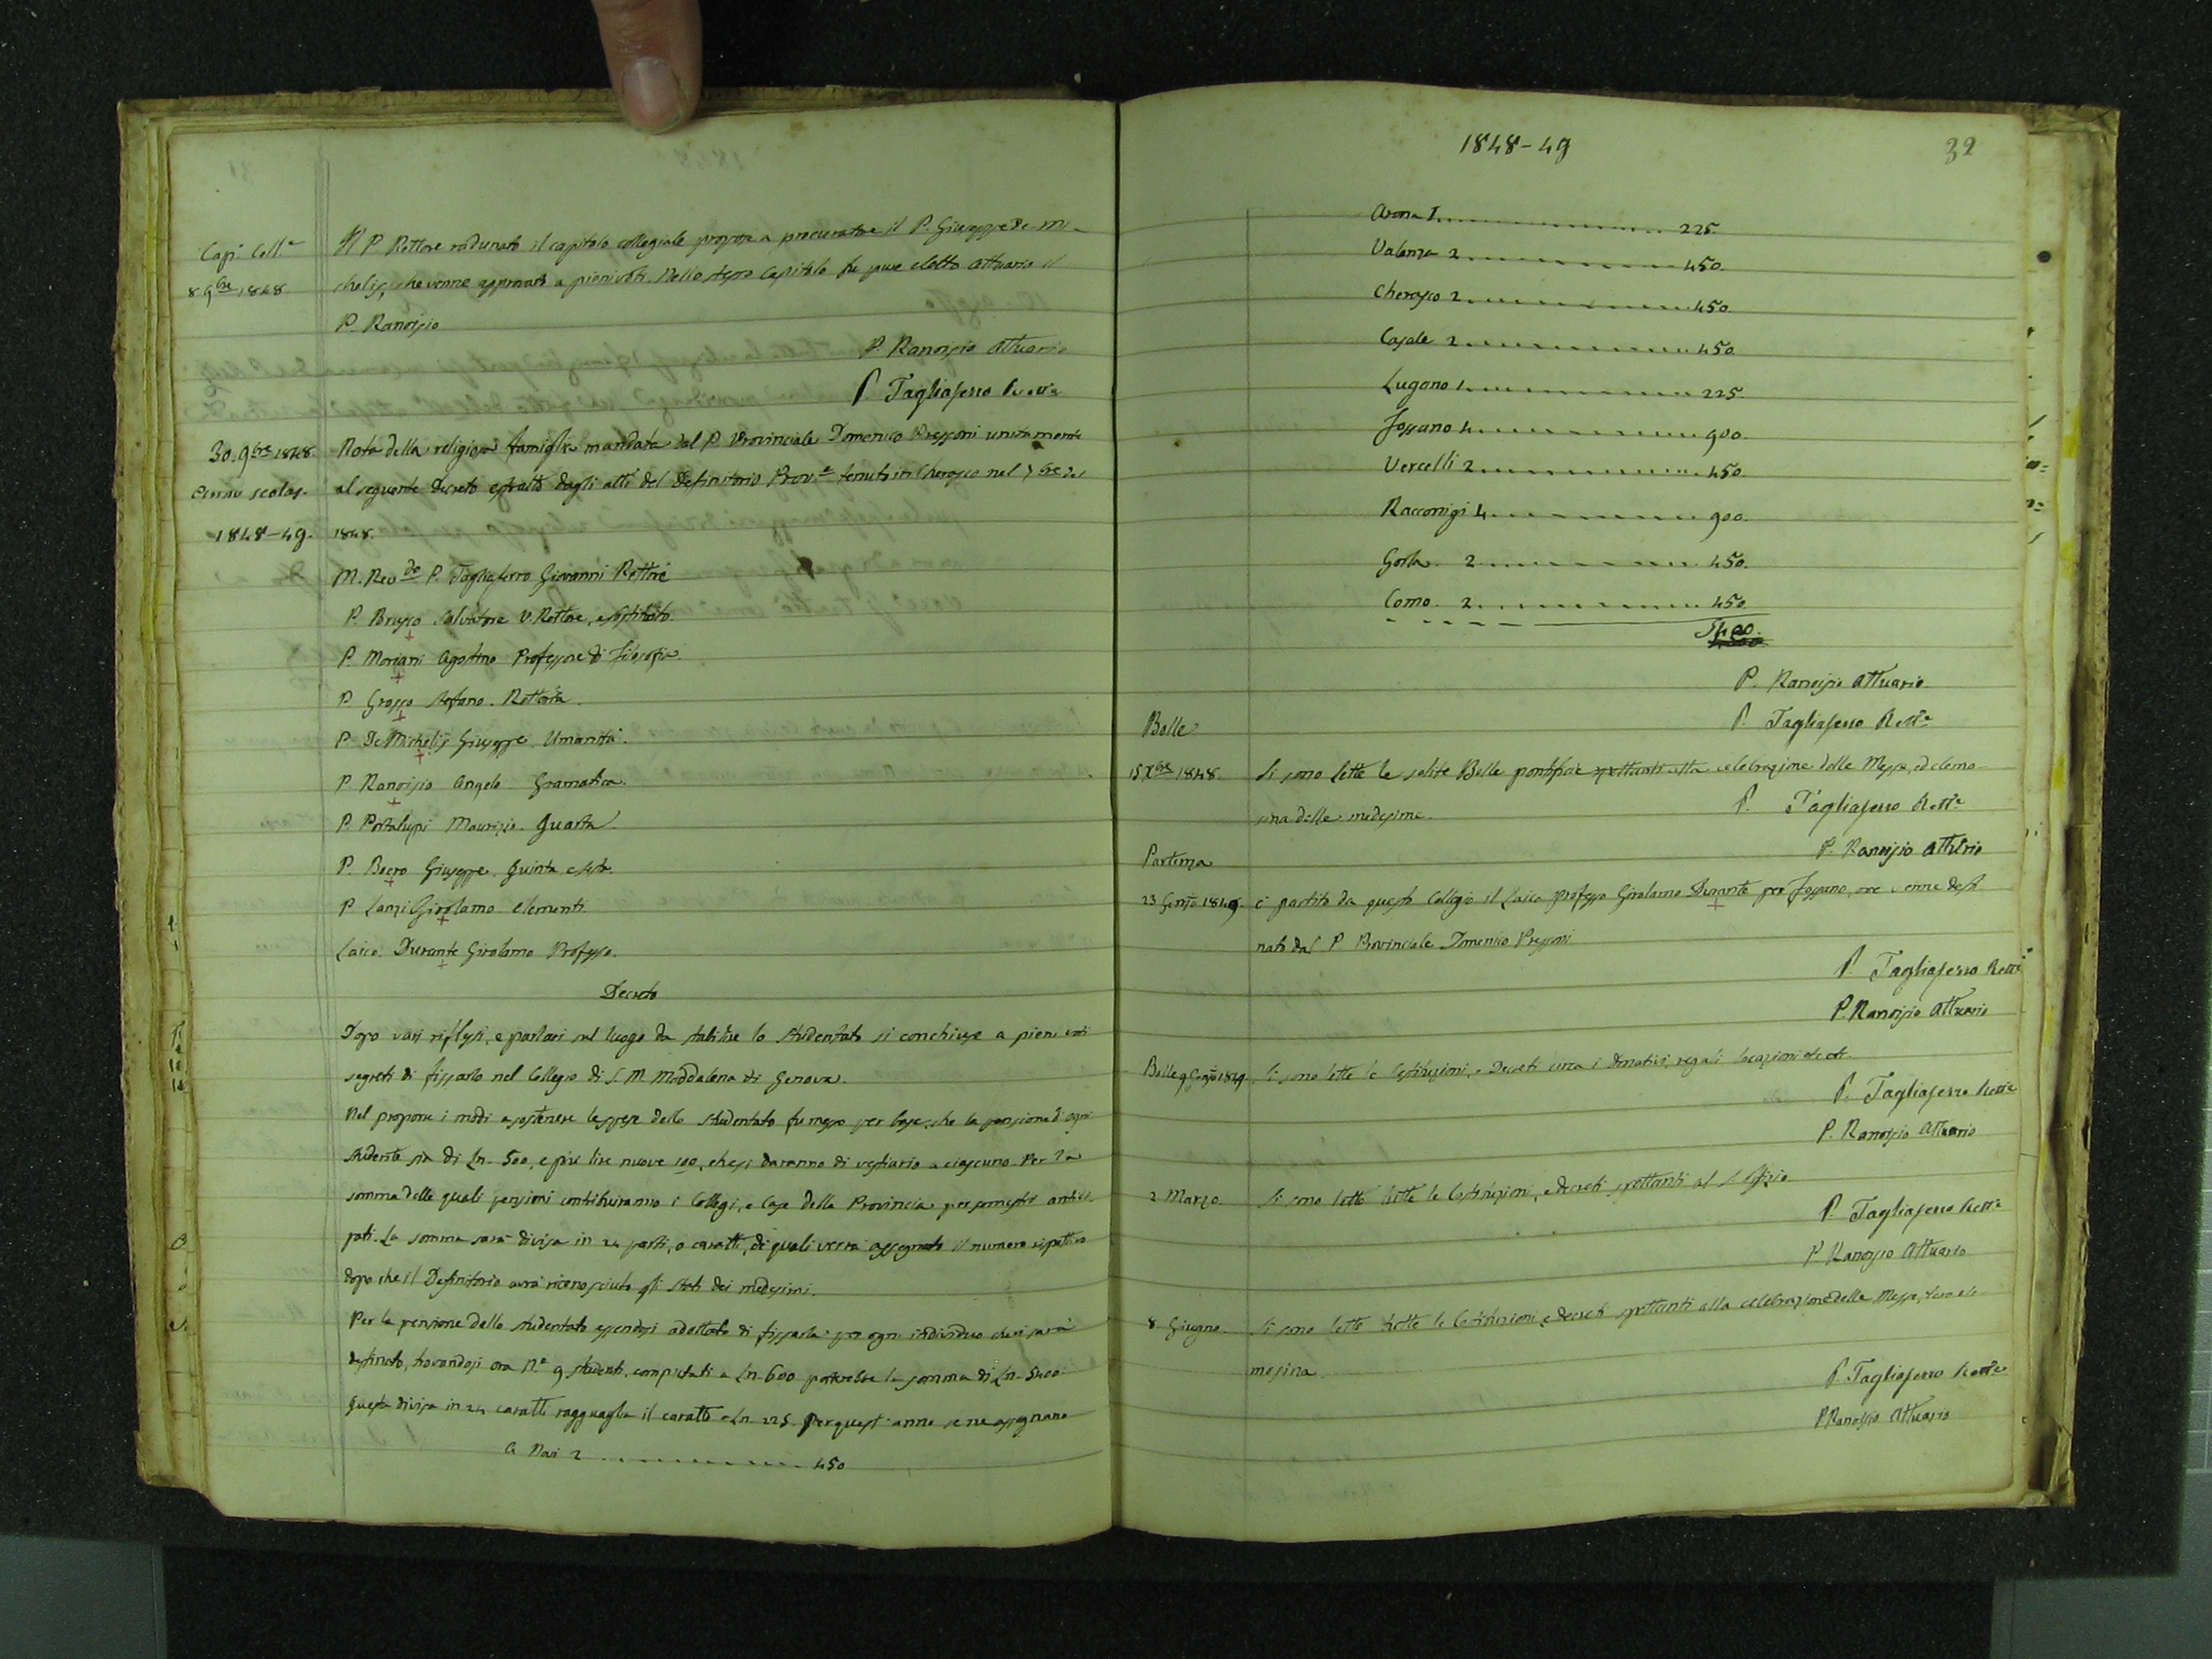 Cap. Coll.e
8 9bre 1848.
Il P. Rettore radunato il capitolo collegiale propose a procuratore il P. Giuseppe De Mi-
chelis, che venne approvato a pieni voti. Nello stesso Capitolo fu pure eletto Attuario il
P. Ranoisio
P. Ranoisio Attuario
P. Tagliaferro Rett.e
30. 9bre 1848.
Anno scolas.
1848-49.
Nota della religiosa famiglia mandata dal P. Provinciale Domenico Pressoni unitamente
al seguente Decreto estratto dagli atti del Definitorio Prov.e tenuto in Cherasco nel 7bre del
1848.
M. Rev.do P. Tagliaferro Giovanni Rettore
P. Brusco Salvatore V. Rettore, e sostituto.
P. Moriani Agostino Professore di Filosofia.
P. Grosso Stefano. Rettorica.
P. De Michelis Giuseppe. Umanità.
P. Ranoisio Angelo. Gramatica.
P. Portalupi Maurizio. Quarta
P. Boero Giuseppe. Quinta e sesta.
P. Lanzi Girolamo elementi.
Laico. Durante Girolamo Professo.
Decreto
Dopo varj riflessi, e parlari sul luogo da stabilire lo Studentato si conchiuse a pieni voti
segreti di fissarlo nel Collegio di S. M. Maddalena di Genova.
Nel proporre i modi a sostenere le spese dello Studentato fu messo per base, che la pensione di ogni
studente sia di Ln. 500, e più lire nuove 100, che si daranno di vestiario a ciascuno. Per la
somma delle quali pensioni contribuiranno i Collegi, e Case della Provincia per semestri antici-
pati. La somma sarà divisa in 24 parti, o caratti, di quali verrà assegnato il numero rispettivo
dopo che il Definitorio avrà riconosciuto gli stati dei medesimi.
Per la pensione dello studentato essendosi adottato di fissarla per ogni individuo che vi sarà
destinato, trovandosi ora N.o 9 studenti, computati a Ln. 600 porterebbe la somma di Ln. 5400.
Questa divisa in 24 caratti ragguaglia il caratto a Ln. 225. Per quest'anno se ne assegnano
A Novi 2 ............ 450
1848-49
32
Arona 1 ............ 225.
Valenza 2 ............ 450.
Cherasco 2 ............ 450.
Casale 2 ............ 450
Lugano 1 ............ 225.
Fossano 4 ............ 900.
Vercelli 2 ............ 450.
Racconigi 4 ............ 900.
Gorla. 2 ............ 450.
Como. 2 ............ 450.
5400.
P. Ranoisio Attuario.
P. Tagliaferro Rett.e
Bolle
15 Xbre 1848.
Si sono lette le solite Bolle pontificie spettanti alla celebrazione delle Messe, ed elemo-
sina delle medesime.
P. Tagliaferro Rett.e
P. Ranoisio Attuario
Partenza
23 Genjo 1849.
è partito da questo Collegio il Laico professo Girolamo Durante per Fossano, ove venne desti-
nato dal P. Provinciale Domenico Pressoni
P. Tagliaferro Rett.e
P. Ranoisio Attuario
Bolle 9 1849.
Si sono lette le Costituzioni, e Decreti circa i donativi, regali, locazioni etc etc.
P. Tagliaferro Rett.e
P. Ranoisio Attuario
2 Marzo.
Si sono lette tutte le Costituzioni, e decreti spettanti al S. Offizio.
P. Tagliaferro Rett.e
P. Ranoisio Attuario
8. Giugno.
Si sono lette tutte le Costituzioni, e decreti spettanti alla celebrazione delle Messe, loro ele-
mosina
P. Tagliaferro Rett.e
P. Ranoisio Attuario